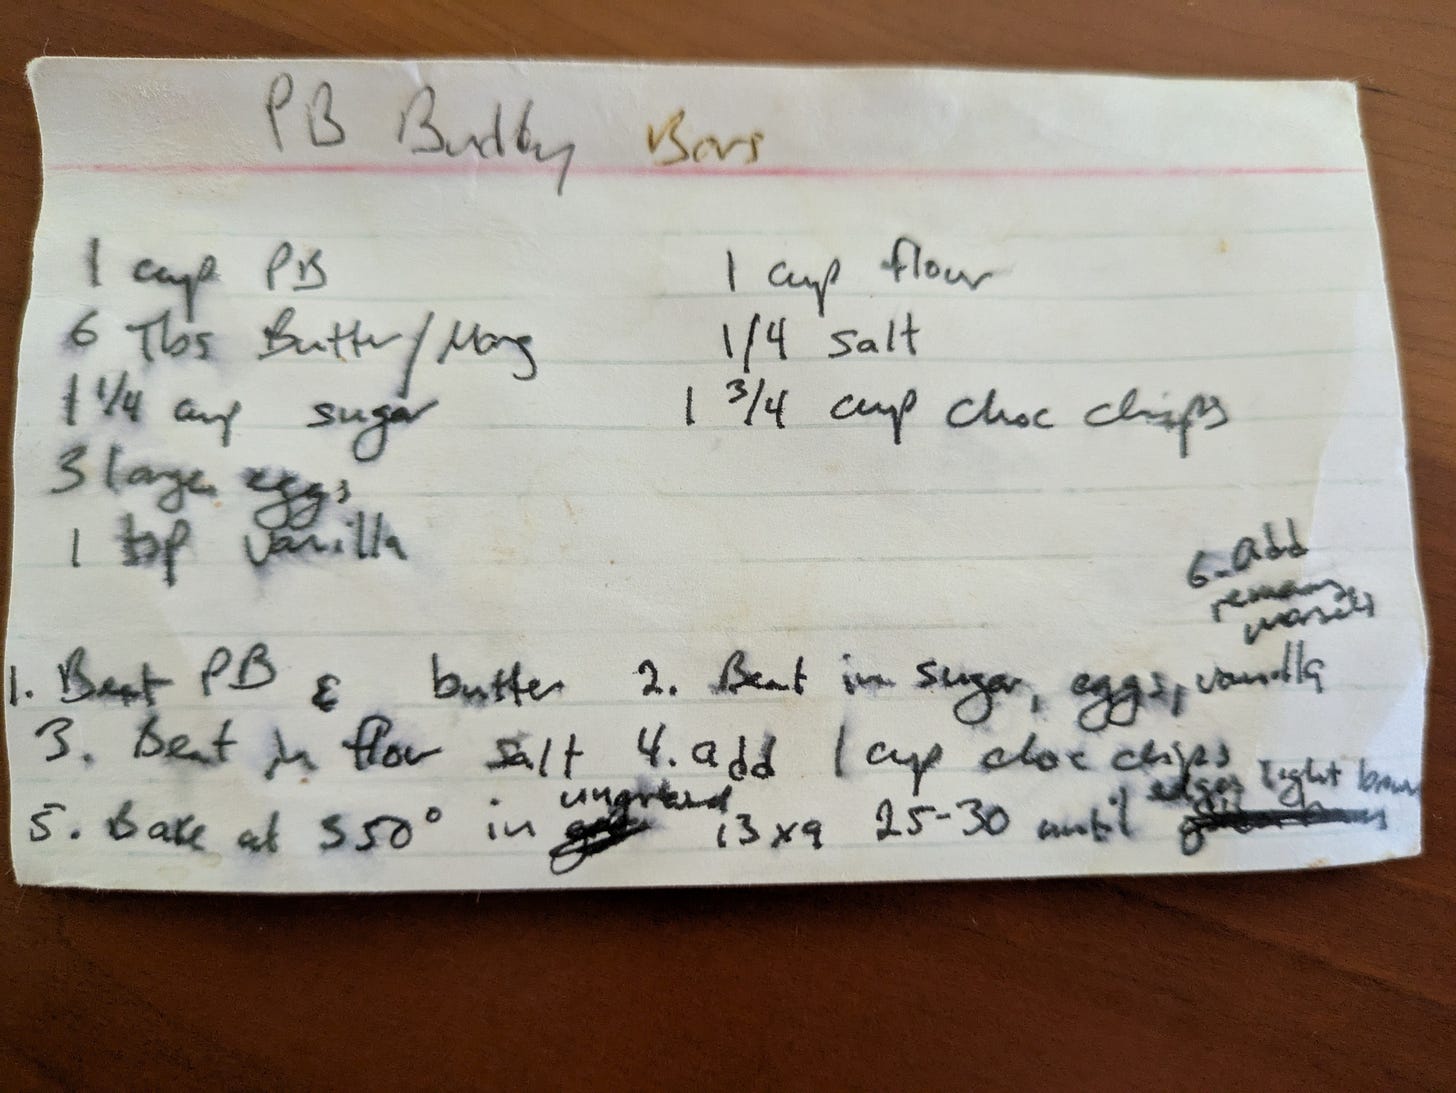 PB Buddy Bars
1 cup PB
6 Tbs Butter/Marg
1 1/4 cup sugar
3 large eggs
1 tsp vanilla
1 cup flour
1/4 salt
1 3/4 cup choc chips
1. Beat PB & butter 2. Beat in sugar, eggs, vanilla
3. Beat in flour salt 4. add 1 cup choc chips
5. Bake at 350° in ungreased 13x9 25-30 until edges light brown
6. add